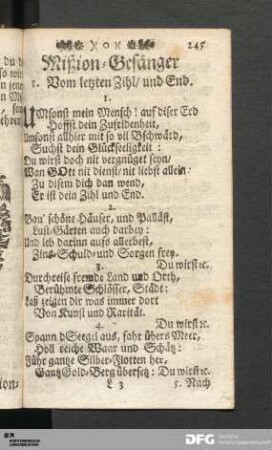 X O X 245
Mißion-Gesänger
1. Vom letzten Zihl/ und End.
1.
UMsonst mein Mensch! auf diser Erd
Hoffst dein Zufridenheit,
Umsonst allhier mit so vil Bschwärd,
Suchst dein Glückseeligkeit:
Du wirst doch nit vergnüget seyn/
Wan GOtt nit dienst/nit liebst allein:
Zu disem dich dan wend,
Er ist dein Zihl und End.
2.
Bau' schöne Häuser, und Palläst,
Lust-Gärten auch darbey:
Und leb darinn aufs allerbest,
Zins-Schuld- und Sorgen frey.
3. Du wirst ꝛc.
Durchreise fremde Land und Orth,
Berühmte Schlösser, Städt:
Laß zeigen dir was immer dort
Von Kunst und Rarität.
4. Du wirst ꝛc.
Spann dSeegel aus, fahr übers Meer,
Holl reiche Waar und Schätz:
Führ gantze Silber-Flotten her,
Gantz Gold-Berg übersetz: Du wirst ꝛc.
L 3 5. Nach
DFG Deutsche
Forschungsgemeinschaft